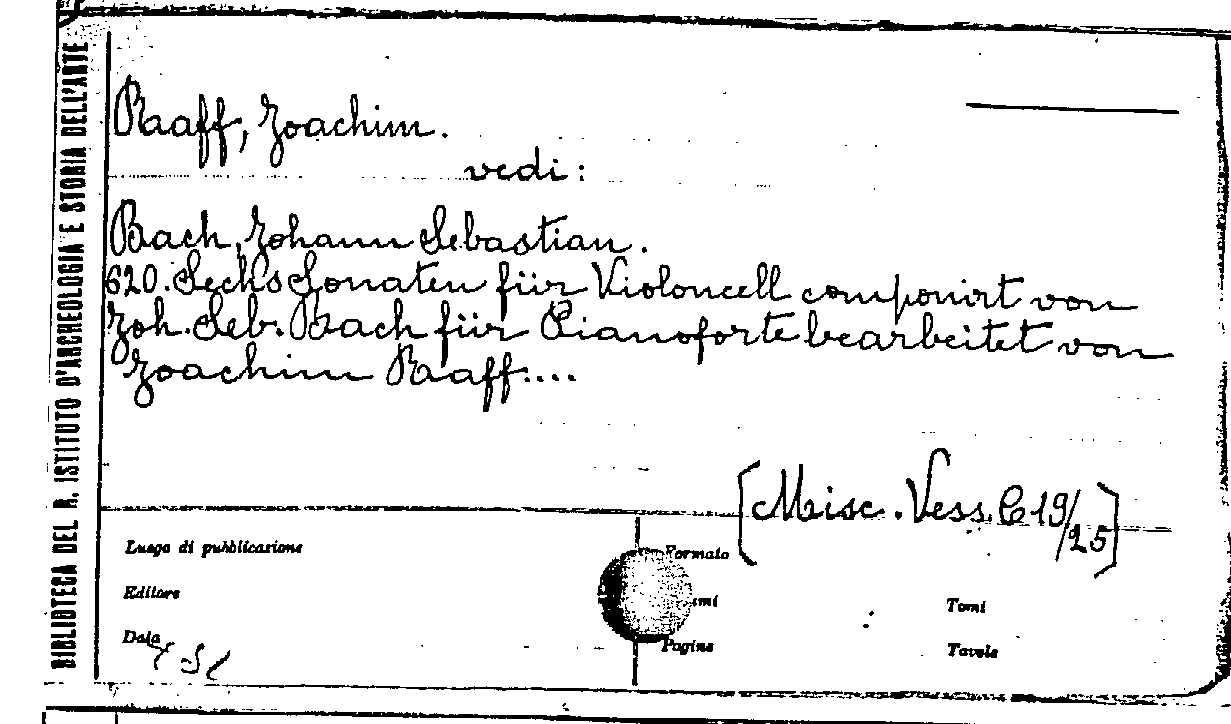 BIBLIOTECA DEL R. ISTITUTO D'ARCHEOLOGIA E STORIA DELL'ARTE
Raaff, Joachim.
vedi:
Bach, Johann Sebastian.
620. Sechs Sonaten für Violoncell componirt von
Joh. Seb. Bach für Pianoforte bearbeitet von
Joachim Raaff....
[Misc. Vess. C 19/25]
Luogo di pubblicazione
Formato
Editore
Tomi
Data
Pagine
Tavole